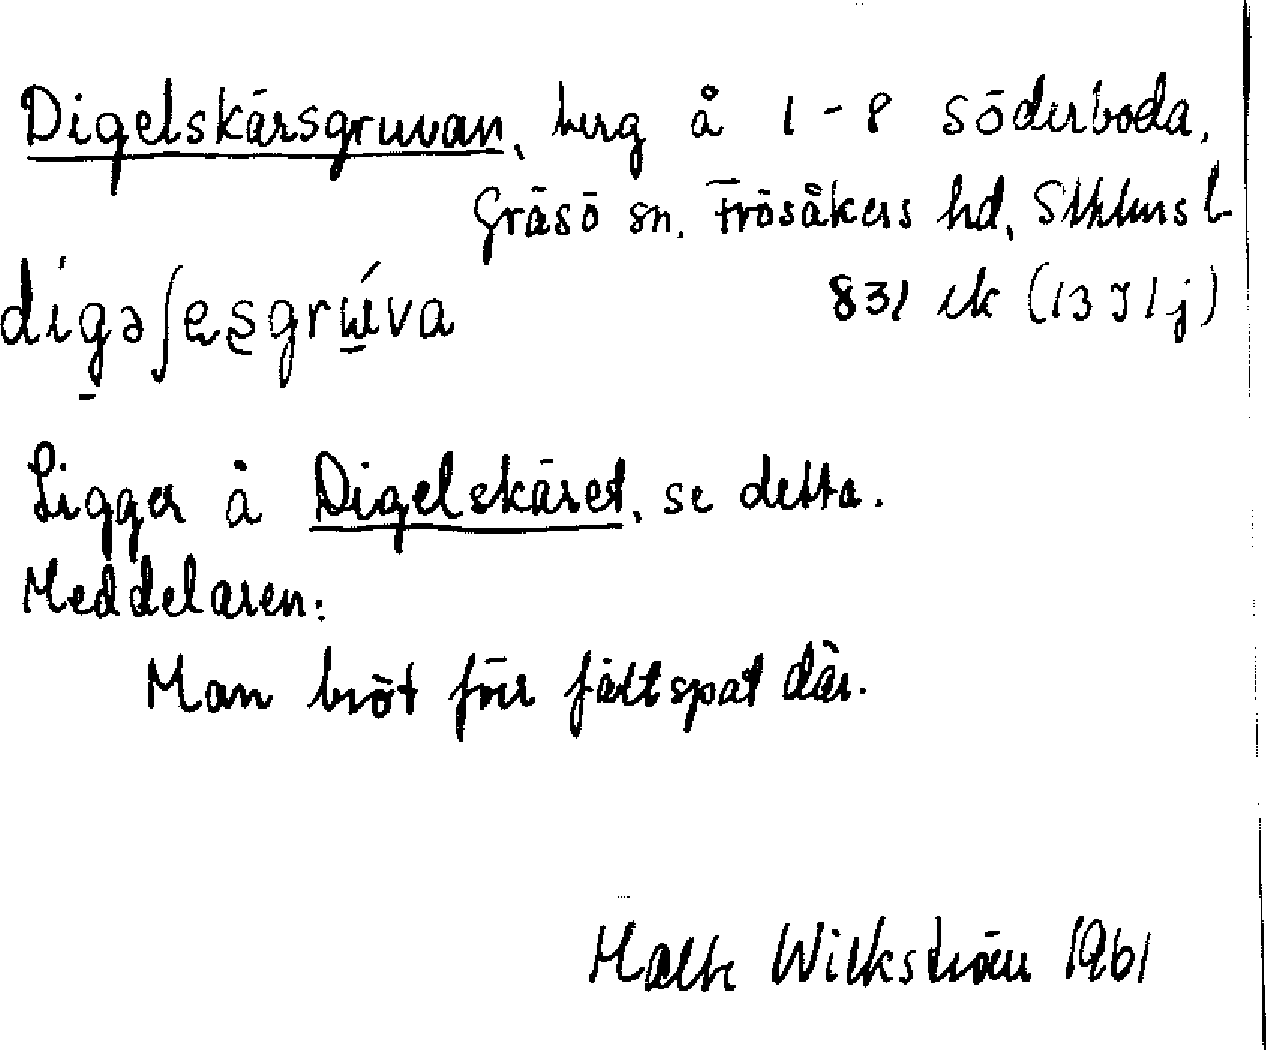 Digelskärsgruvan, berg å 1-8 Söderboda,
Gräsö sn, Frösåkers hd, Sthlms l
digəʃæsgrɯ́va 831 ek (13I1j)
Ligger å Digelskäret, se detta.
Meddelaren:
Man bröt för fältspat där.
Malte Wilkström 1961